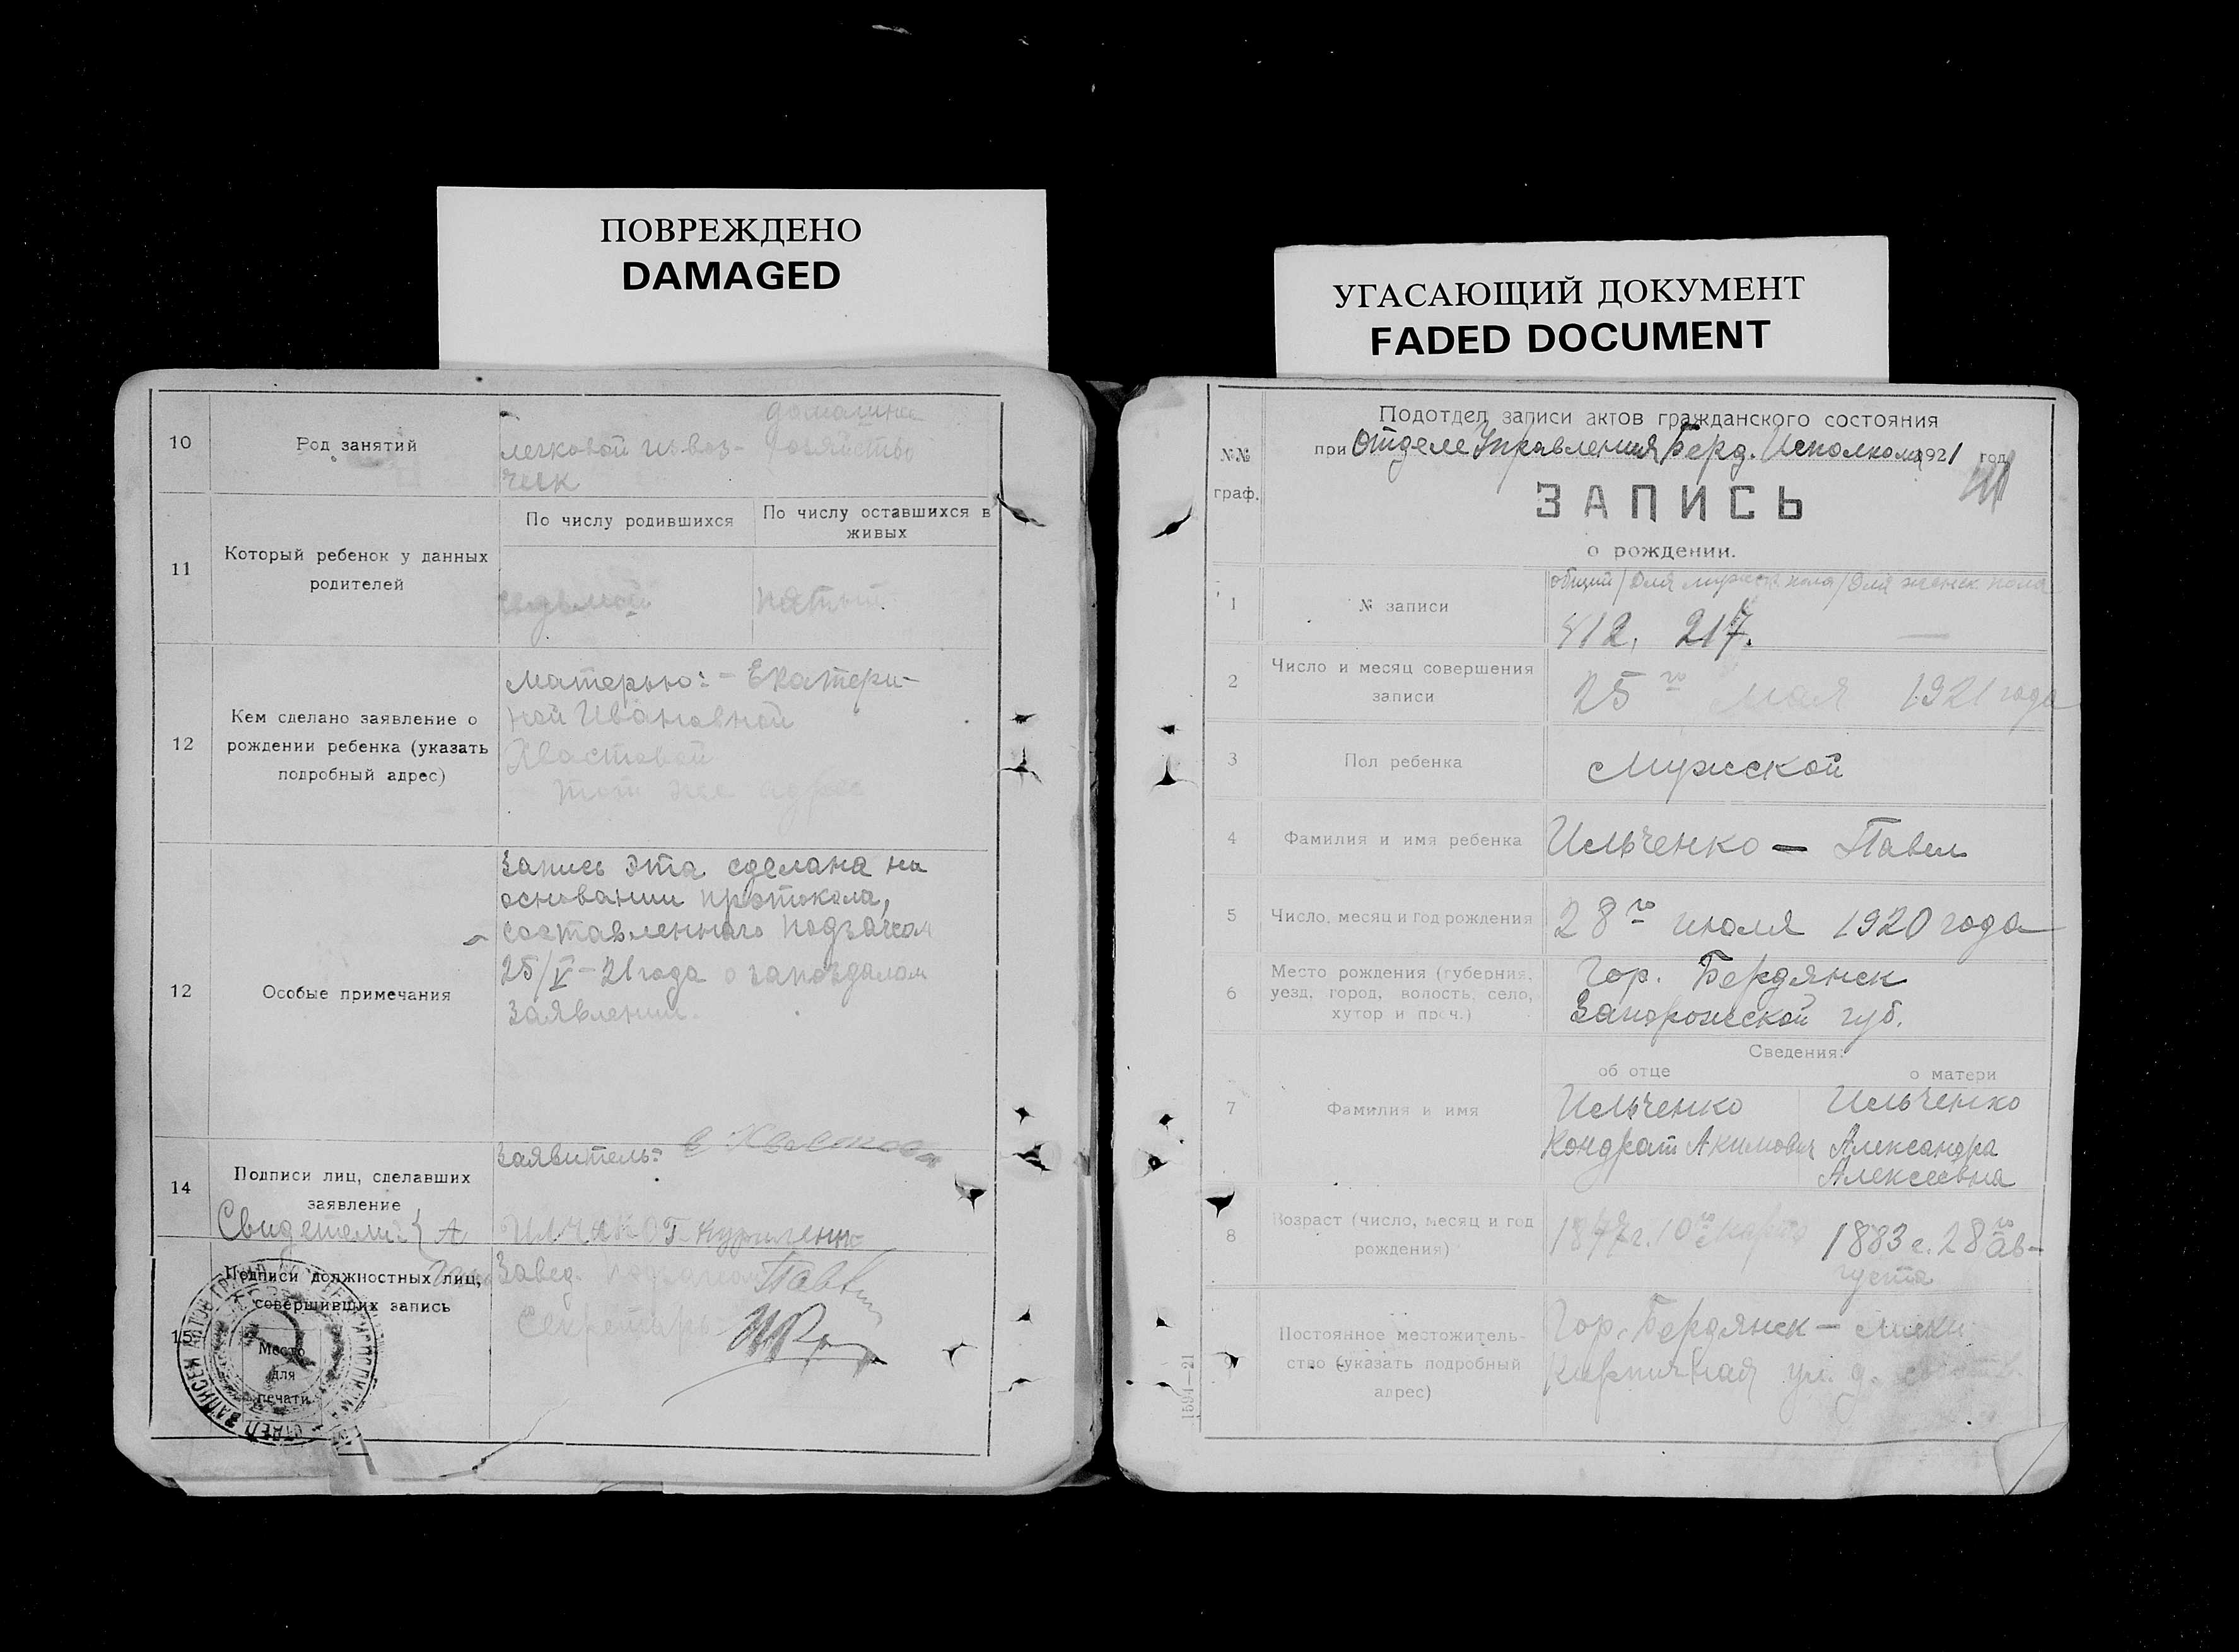 ПОВРЕЖДЕНО
DAMAGED
10
Род занятий
легковой извоз-
чик
домашнее
хозяйство
11
Который ребенок у данных
родителей
По числу родившихся
По числу оставшихся в
живых
седьмой
пятый
12
Кем сделано заявление о
рождении ребенка (указать
подробный адрес)
Матерью: - Екатери-
ной Ивановной
Хвастовой
тот же адрес
12
Особые примечания
Запись эта сделана на
основании протокола,
составленного подзагсом
25/V-21 года о запоздалом
заявлении.
14
Подписи лиц, сделавших
заявление
Заявитель:
Свидетели: { А
15
Подписи должностных лиц,
совершивших запись
Место
для
печати
Завед.
Секретарь
УГАСАЮЩИЙ ДОКУМЕНТ
FADED DOCUMENT
№№
граф.
Подотдел записи актов гражданского состояния
при Отделе Управления Берд. Исполкома 1921 год
ЗАПИСЬ
о рождении.
1
№ записи
общий / для мужск. пола / для женск. пола
412, 217. —
2
Число и месяц совершения
записи
25го мая 1921 года
3
Пол ребенка
Мужской
4
Фамилия и имя ребенка
Ильченко — Павел
5
Число, месяц и год рождения
28го июля 1920 года
6
Место рождения (губерния,
уезд, город, волость, село,
хутор и проч.)
Гор. Бердянск
Запорожской губ.
Сведения:
об отце
о матери
7
Фамилия и имя
Ильченко
Кондрат Акимович
Ильченко
Александра
Алексеевна
8
Возраст (число, месяц и год
рождения)
1877 г. 10го марта
1883 г. 28го ав-
густа
9
Постоянное местожитель-
ство (указать подробный
адрес)
Гор. Бердянск —
Кирпичная ул. д.
1594—21